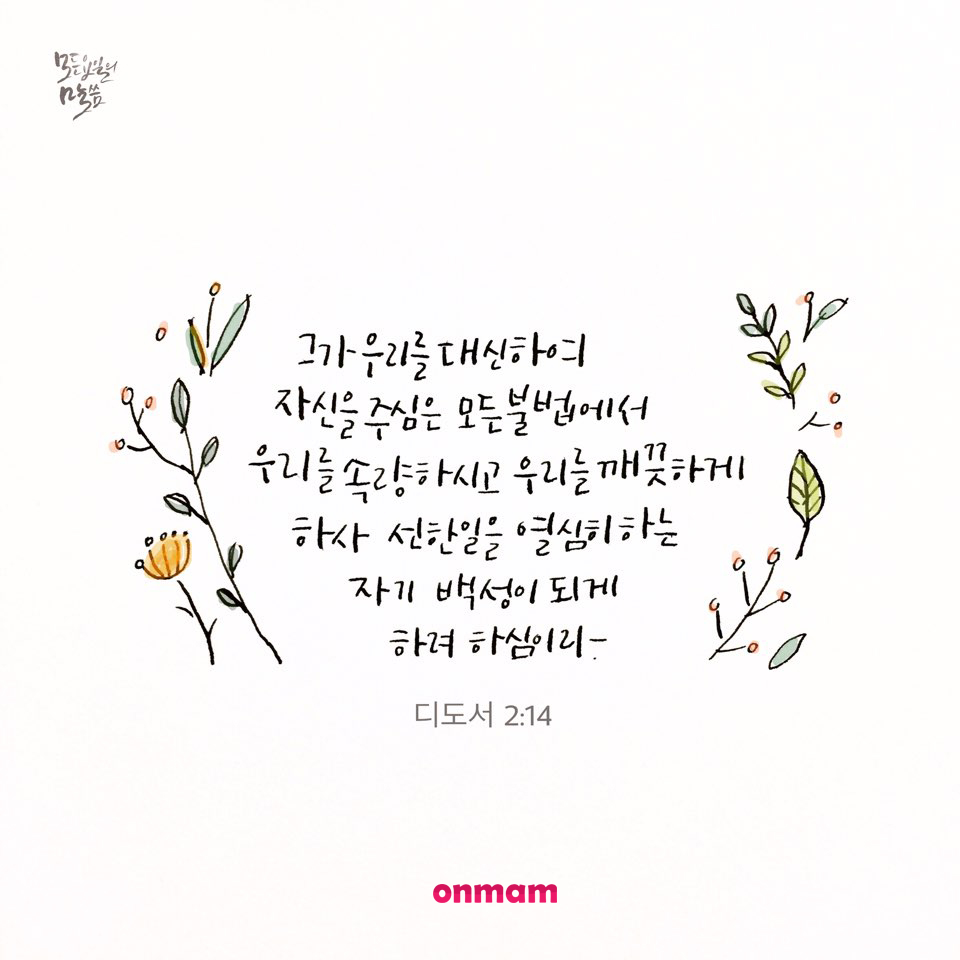 모든요일의
말씀
그가 우리를 대신하여
자신을 주심은 모든 불법에서
우리를 속량하시고 우리를 깨끗하게
하사 선한 일을 열심히 하는
자기 백성이 되게
하려 하심이라-
디도서 2:14
onmam